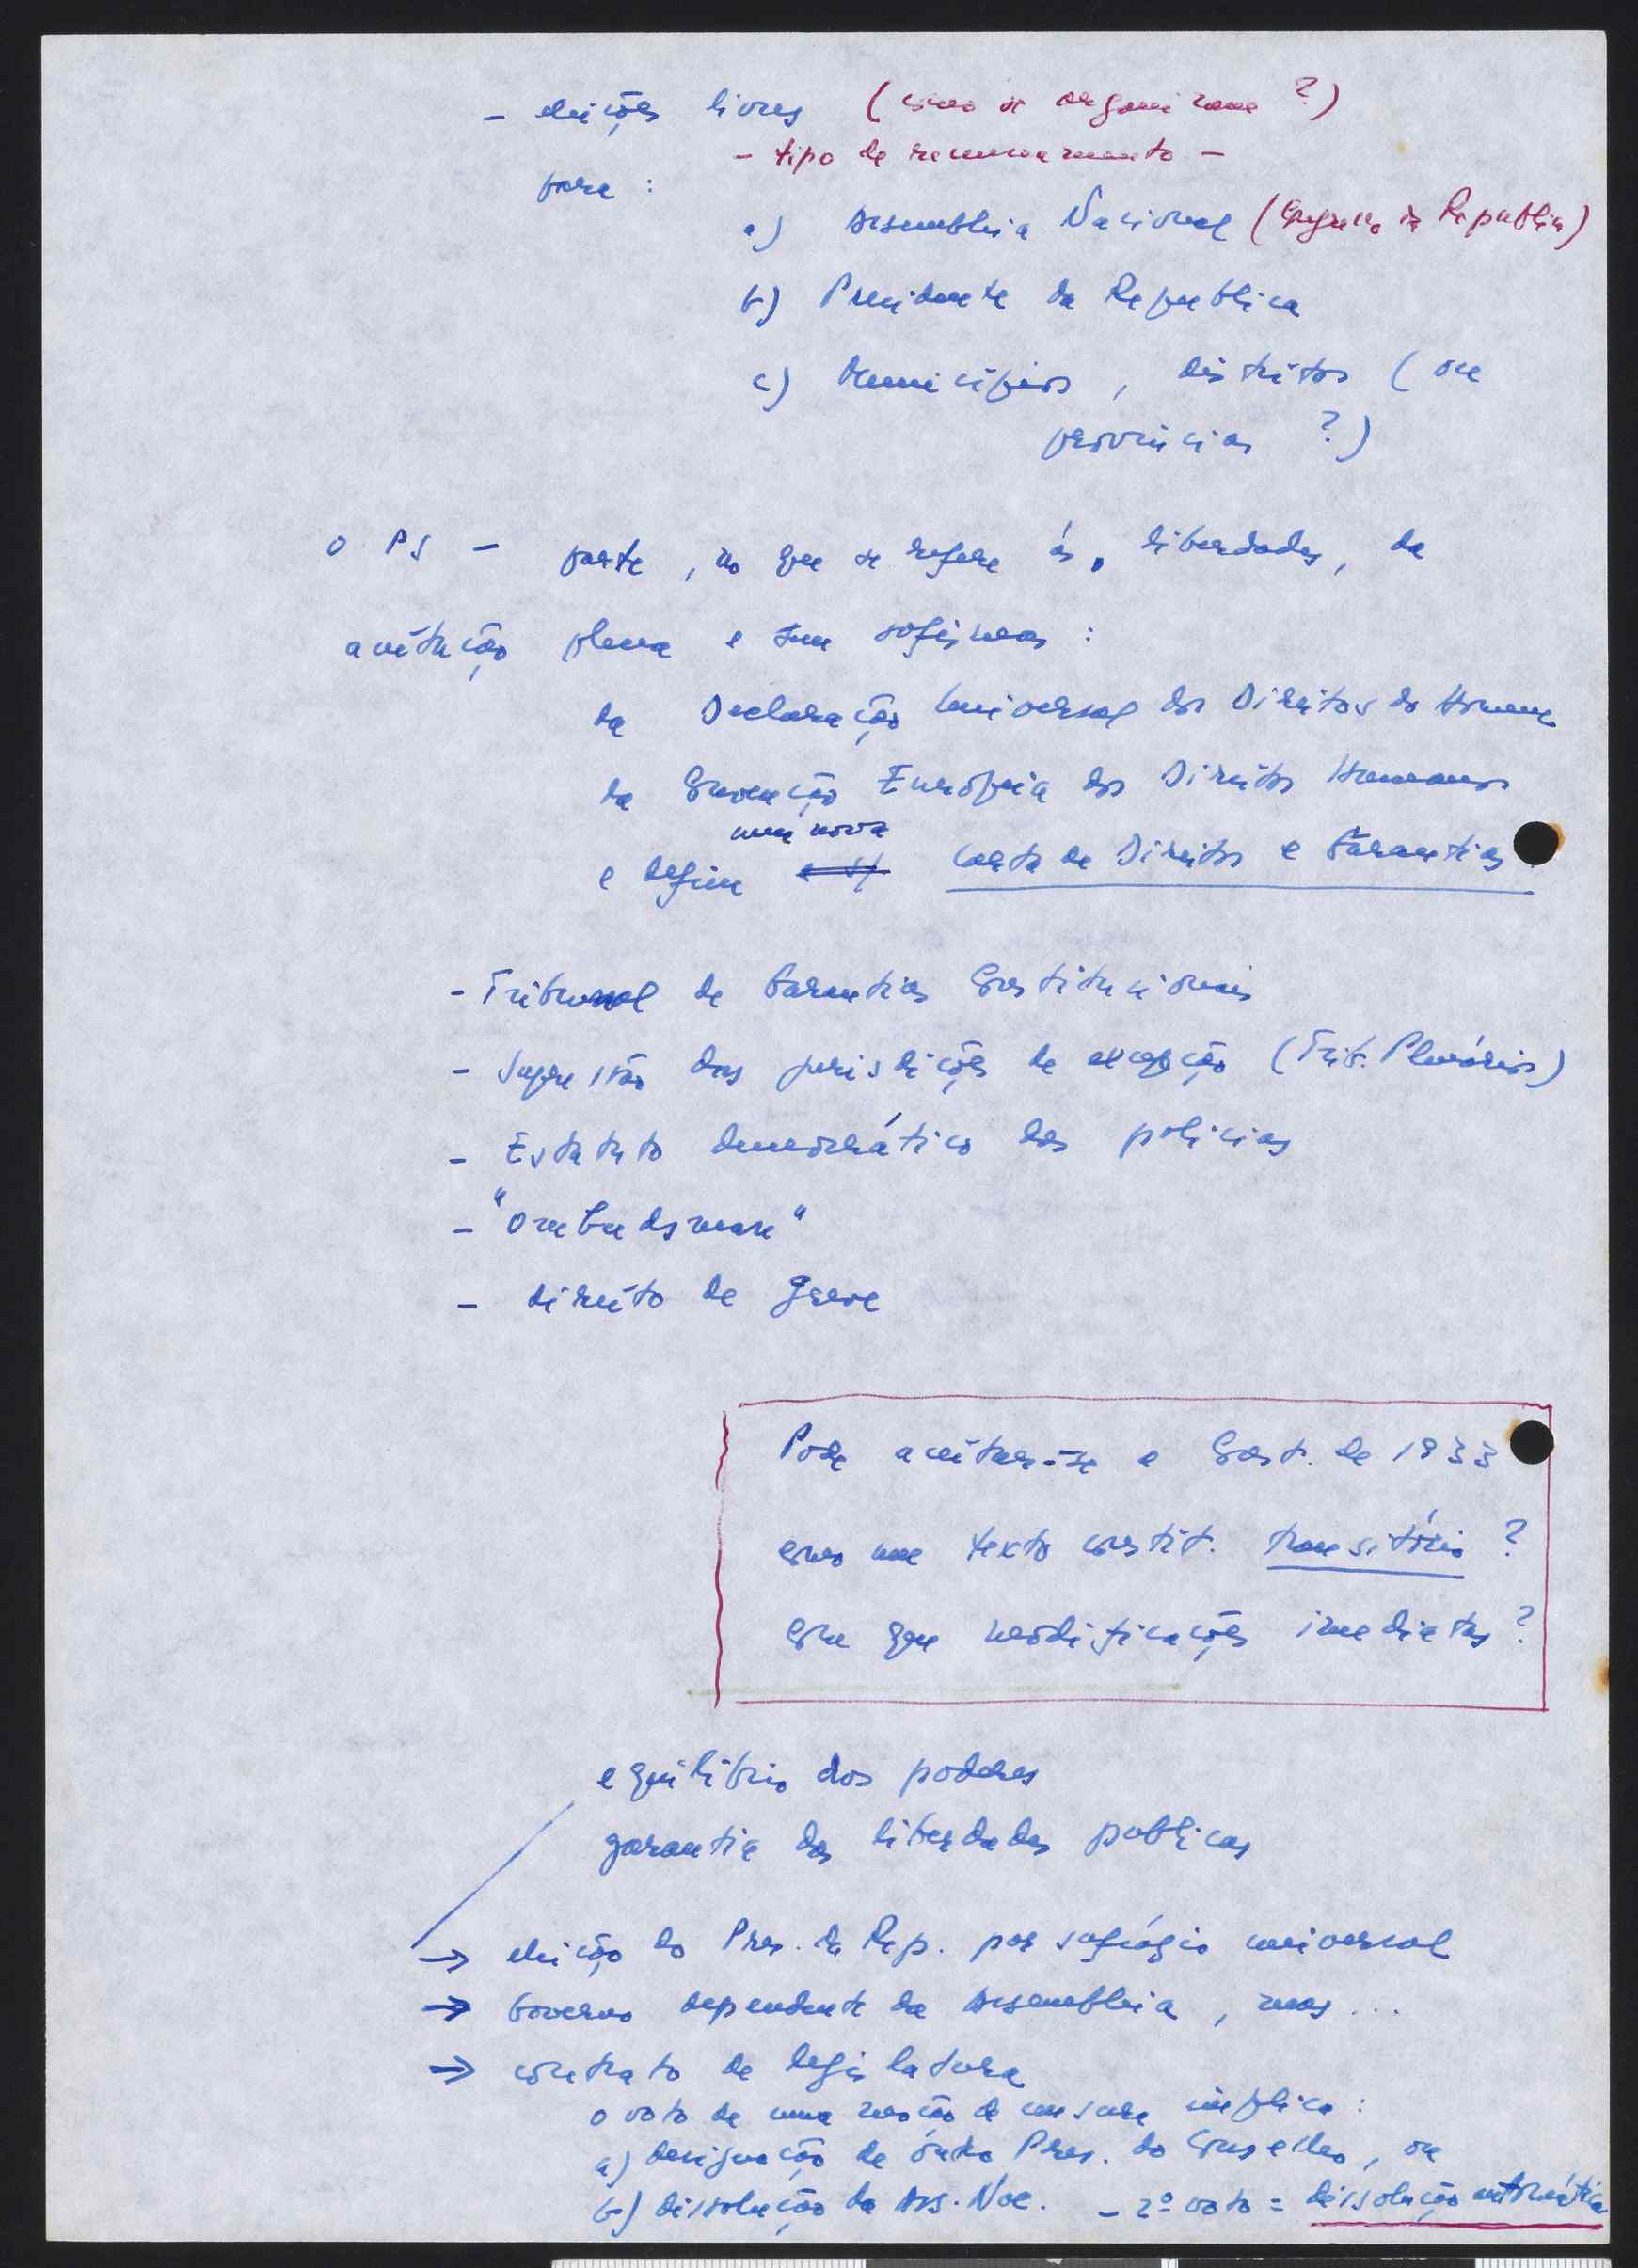 - eleições livres (como se organizam ?)
- tipo de recenseamento -
para :
a) Assembleia Nacional (Congresso da Republica)
b) Presidente da Republica
c) Municípios, distritos (ou
províncias ?)
O PS - parte, no que se refere às liberdades, da
aceitação plena e sem sofismas :
da Declaração Universal dos Direitos do Homem
da Convenção Europeia dos Direitos Humanos
uma nova
e define Carta de Direitos e Garantias
- Tribunal de Garantias Constitucionais
- Supressão das jurisdições de excepção (Trib. Plenários)
- Estatuto democrático das policias
- "Ombudsman"
- direito de greve
Pode aceitar-se a Const. de 1933
como um texto constit. transitório ?
com que modificações imediatas ?
equilíbrio dos poderes
garantia das liberdades publicas
→ eleição do Pres. da Rep. por sufrágio universal
→ Governo dependente da Assembleia, mas ...
→ contrato de legislatura
o voto de uma moção de censura implica :
a) designação de outro Pres. do Conselho, ou
b) dissolução da Ass. Nac. - 2º voto = dissolução automática